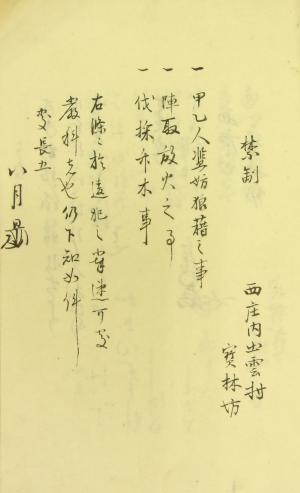 禁制
西庄内出雲村
寳林坊
一 甲乙人濫妨狼藉之事
一 陣取放火之事
一 伐採竹木事
右條々於違犯之輩速可処
厳科者也仍下知如件
慶長五
八月